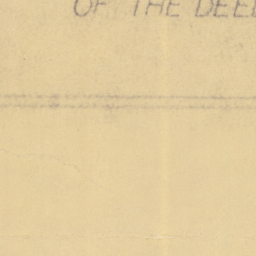 OF THE DEED